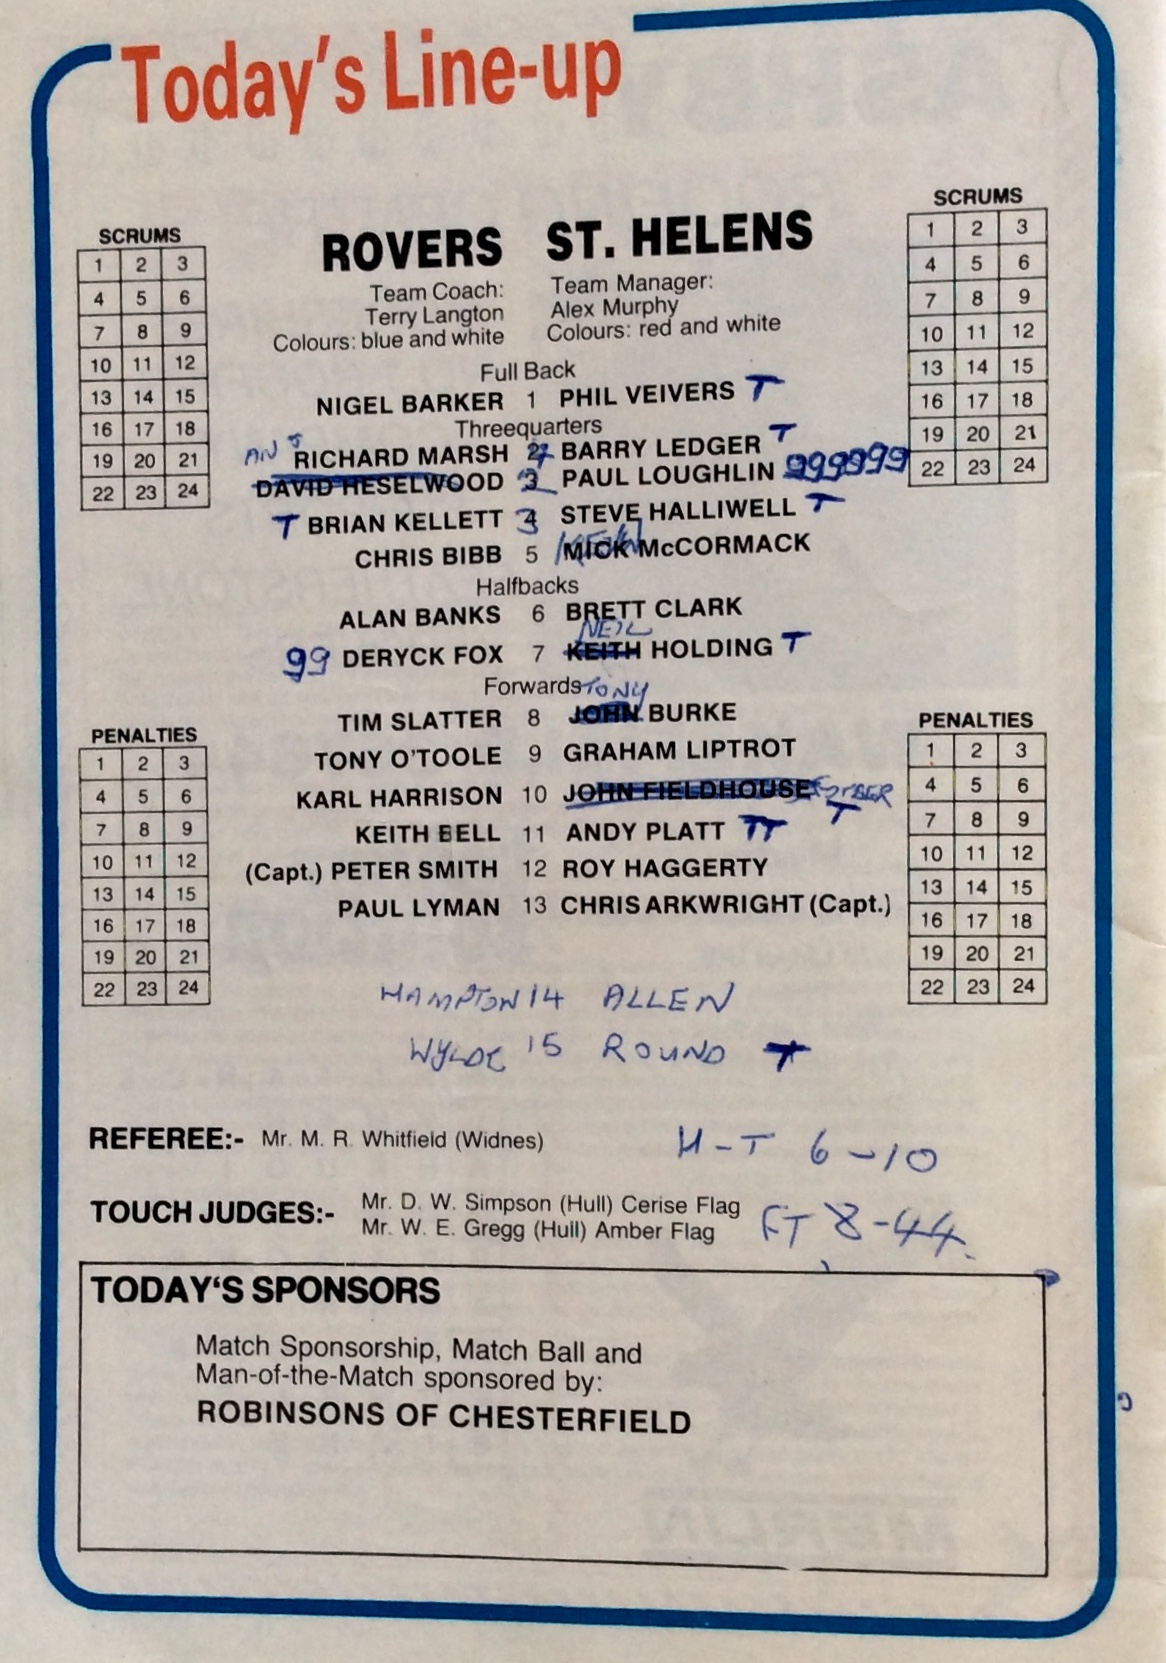 Today's Line-up
SCRUMS
1 2 3
4 5 6
7 8 9
10 11 12
13 14 15
16 17 18
19 20 21
22 23 24
SCRUMS
1 2 3
4 5 6
7 8 9
10 11 12
13 14 15
16 17 18
19 20 21
22 23 24
ROVERS ST. HELENS
Team Coach: Team Manager:
Terry Langton Alex Murphy
Colours: blue and white Colours: red and white
Full Back
NIGEL BARKER 1 PHIL VEIVERS T
Threequarters
RICHARD MARSH BARRY LEDGER T
DAVID HESELWOOD 3 PAUL LOUGHLIN 999999
T BRIAN KELLETT 4 3 STEVE HALLIWELL T
CHRIS BIBB 5 MICK KEVIN McCORMACK
Halfbacks
ALAN BANKS 6 BRETT CLARK
NEIL
99 DERYCK FOX 7 KEITH HOLDING T
Forwards TONY
TIM SLATTER 8 JOHN BURKE
TONY O'TOOLE 9 GRAHAM LIPTROT
KARL HARRISON 10 JOHN FIELDHOUSE FORBER
T
KEITH BELL 11 ANDY PLATT TT
(Capt.) PETER SMITH 12 ROY HAGGERTY
PAUL LYMAN 13 CHRIS ARKWRIGHT (Capt.)
HAMPTON 14 ALLEN
WYLDE 15 ROUND T
PENALTIES
1 2 3
4 5 6
7 8 9
10 11 12
13 14 15
16 17 18
19 20 21
22 23 24
PENALTIES
1 2 3
4 5 6
7 8 9
10 11 12
13 14 15
16 17 18
19 20 21
22 23 24
REFEREE:- Mr. M. R. Whitfield (Widnes) H-T 6-10
TOUCH JUDGES:- Mr. D. W. Simpson (Hull) Cerise Flag
Mr. W. E. Gregg (Hull) Amber Flag FT 8-44
TODAY'S SPONSORS
Match Sponsorship, Match Ball and
Man-of-the-Match sponsored by:
ROBINSONS OF CHESTERFIELD